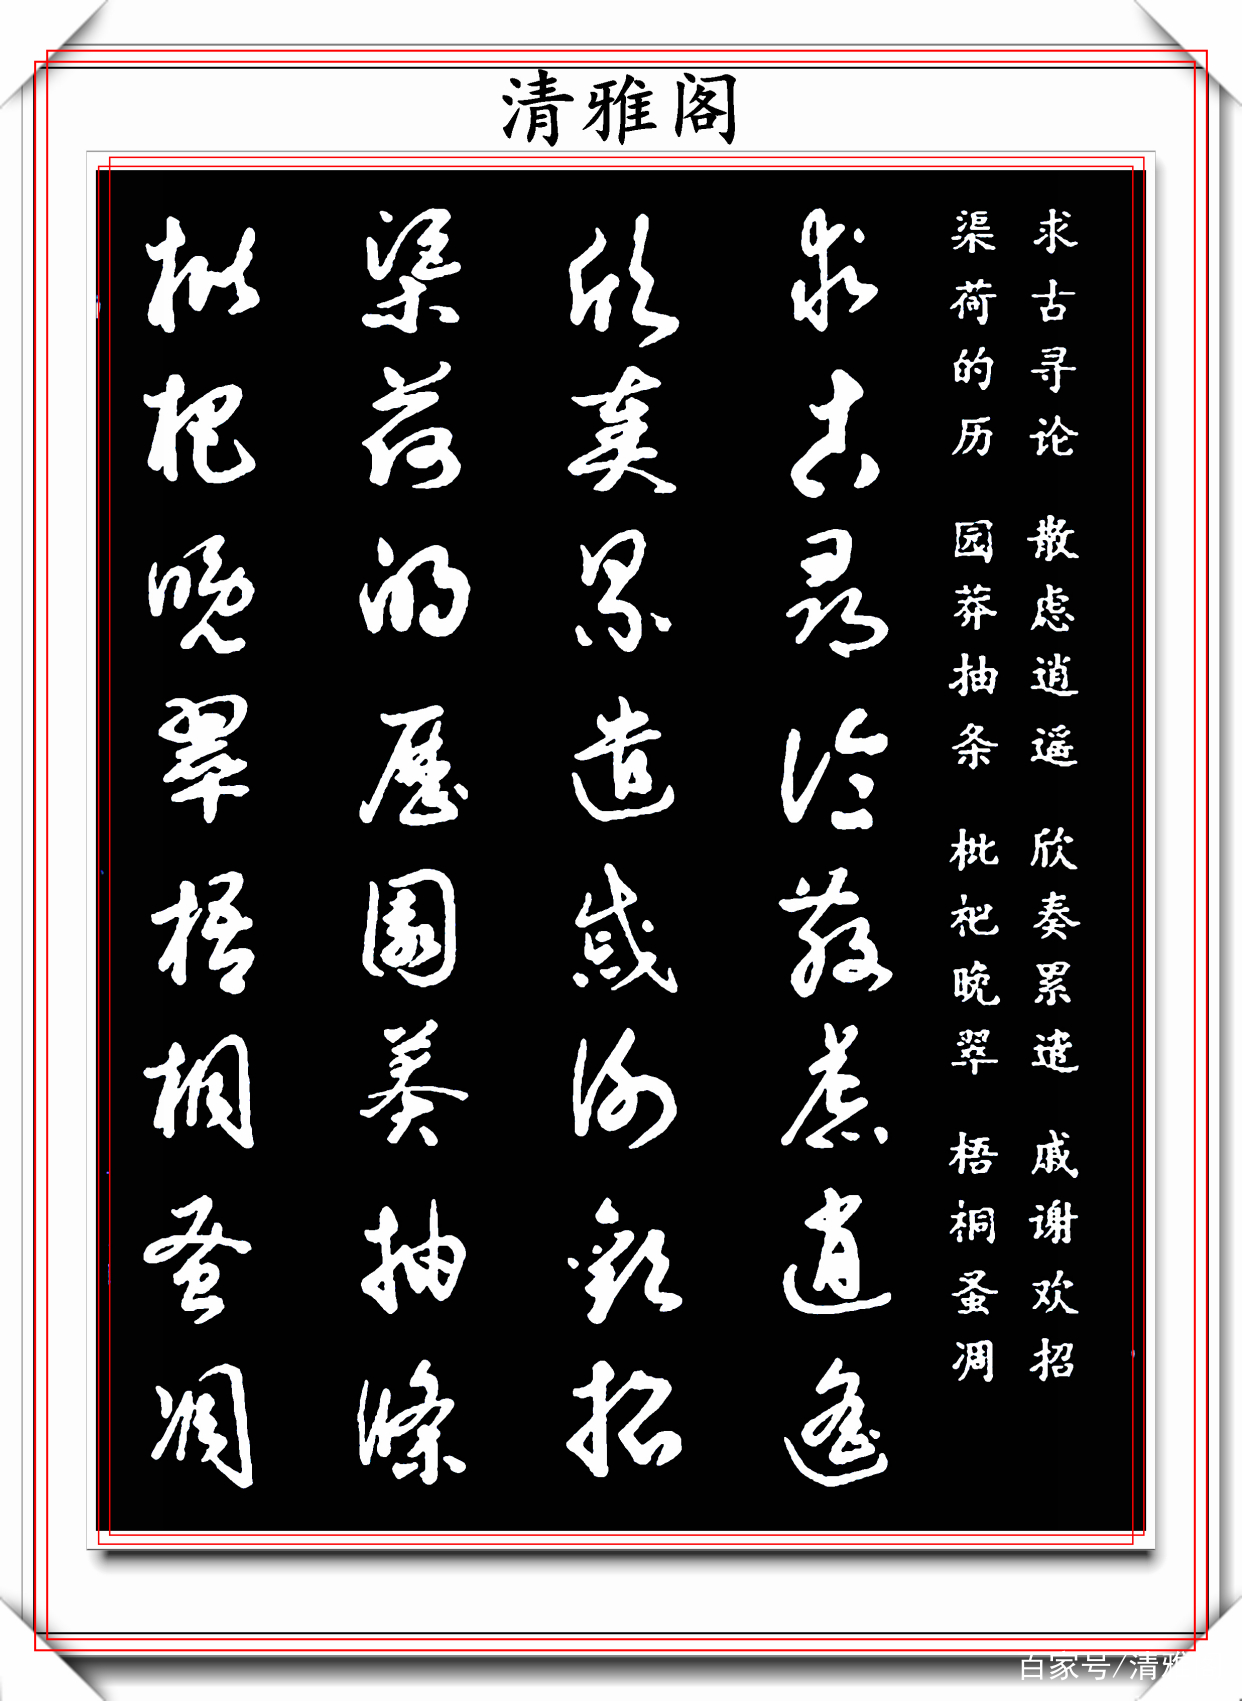 清雅阁
求古寻论 散虑逍遥 欣奏累遣 戚谢欢招
渠荷的历 园莽抽条 枇杷晚翠 梧桐蚤凋
求古尋論散慮逍遙
欣奏累遣慼謝歡招
渠荷的歷園莽抽條
枇杷晚翠梧桐蚤凋
百家号/清雅